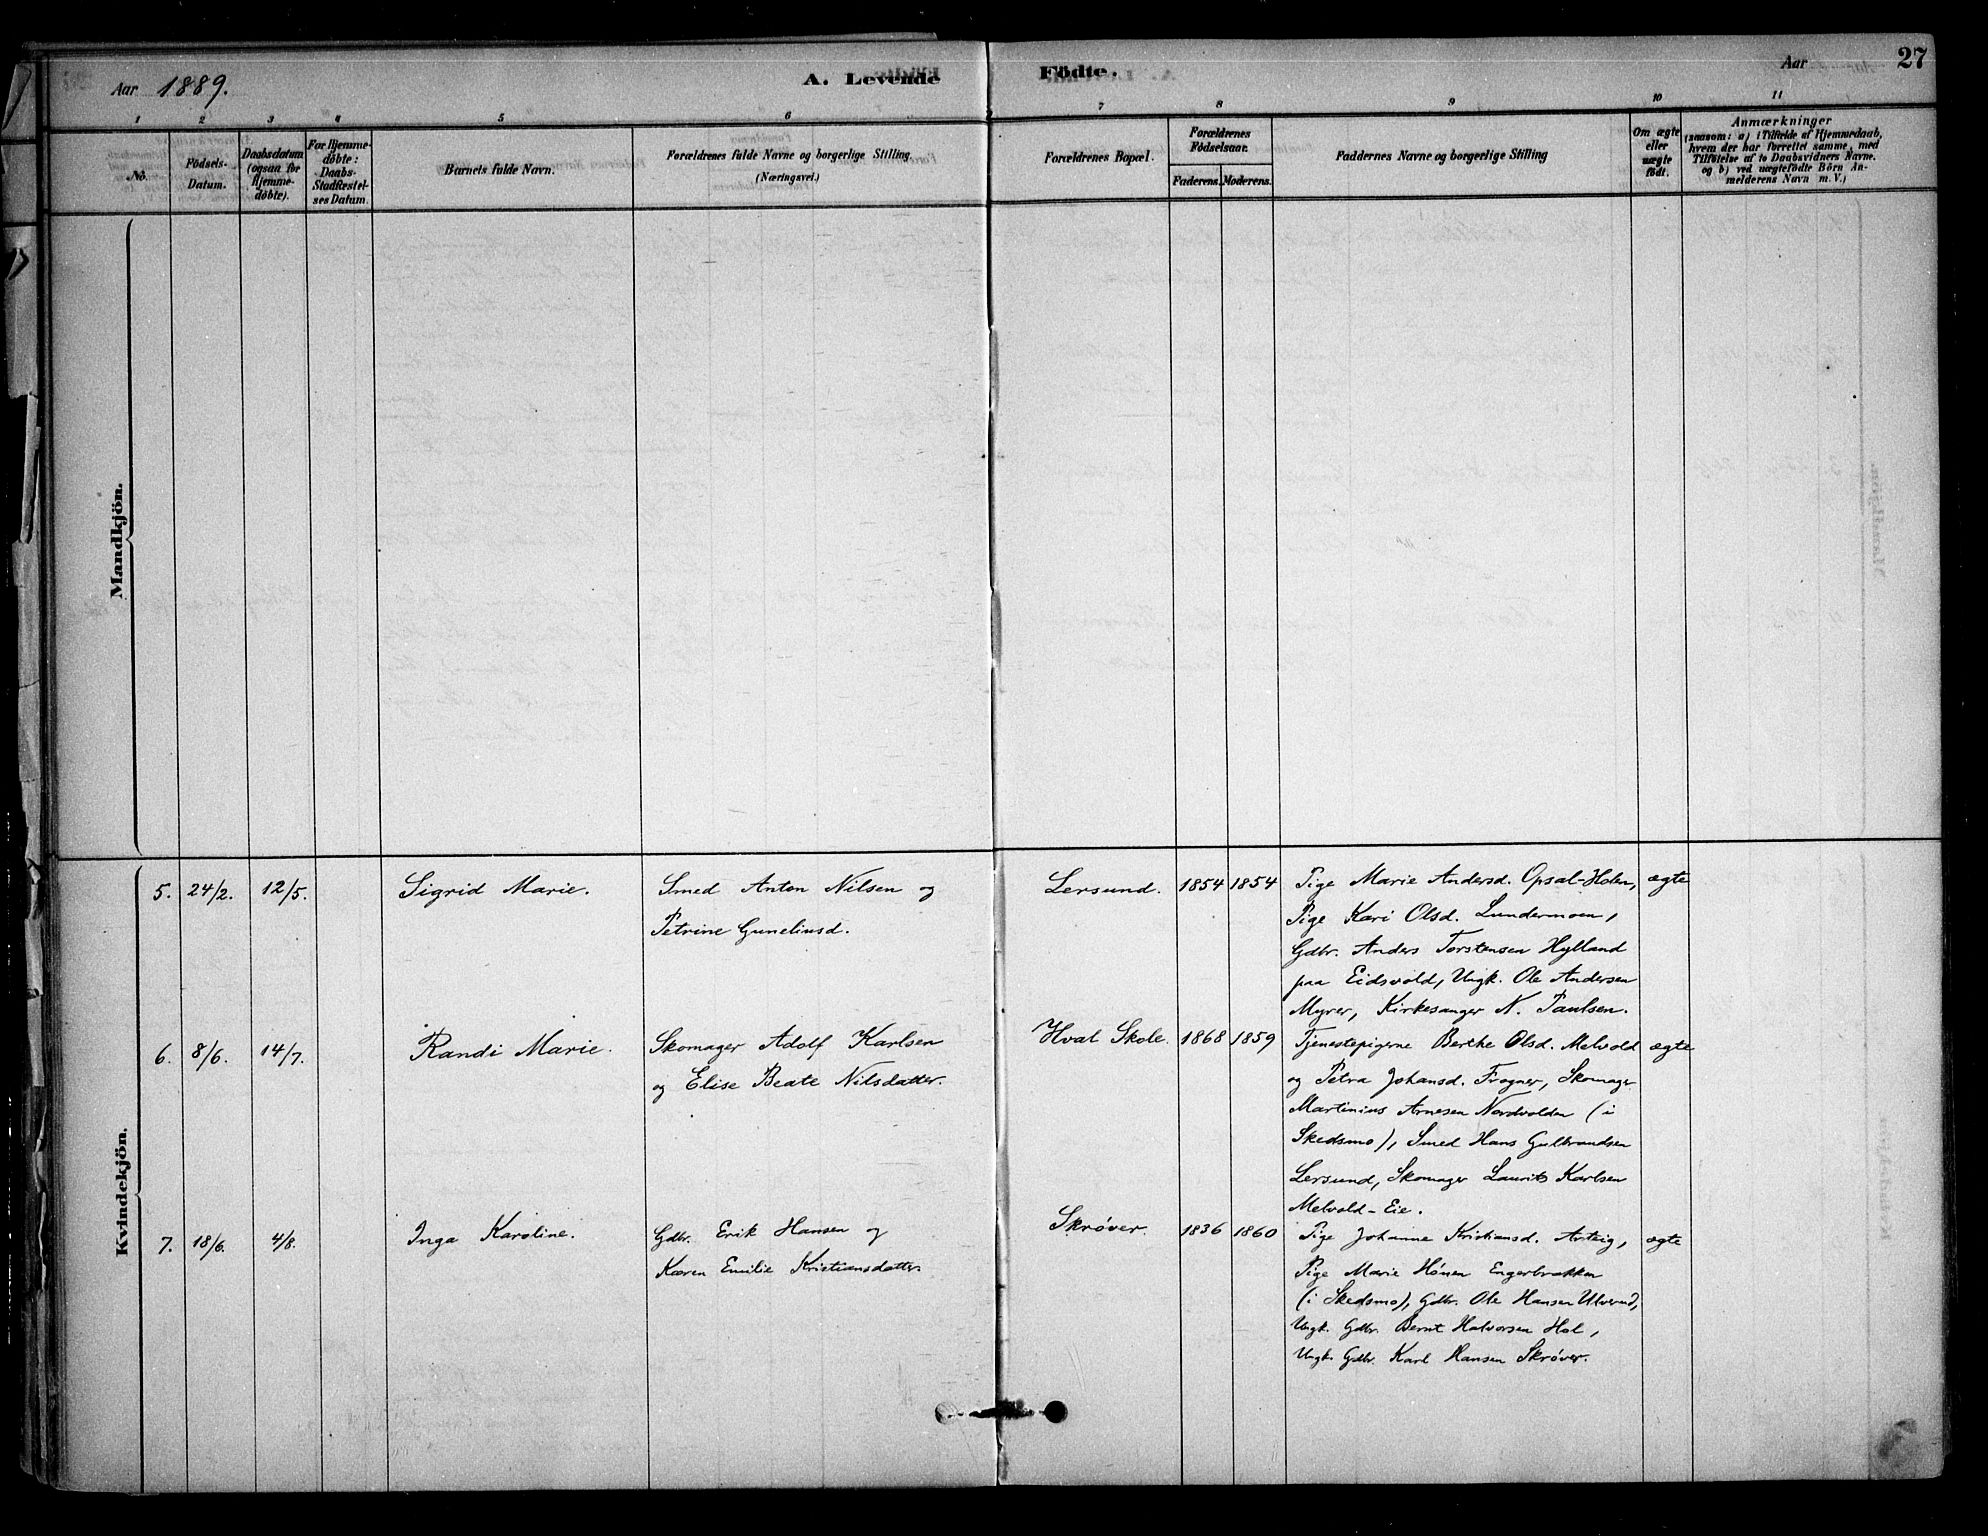 Aar 1889.
A. Levende
Födte.
Aar
27
1
2
3
4
5
6
7
8
9
10
11
No.
Födsels-
Datum.
Daabsdatum
(ogsaa for
Hjemme-
döbte).
For Hjemme-
döbte:
Daabs-
Stadfæstel-
ses Datum.
Barnets fulde Navn.
Forældrenes fulde Navne og borgerlige Stilling.
(Næringsvei.)
Forældrenes Bopæl.
Forældrenes
Födselsaar.
Faderens.
Moderens.
Faddernes Navne og borgerlige Stilling
Om ægte
eller
uægte
födt.
Anmærkninger
(saasom: a) i Tilfælde af Hjemmedaab,
hvem der har forrettet samme, med
Tilföielse af to Daabsvidners Navne.
og b) ved uægtefödte Börn An-
melderens Navn m. V.)
Mandkjön.
Kvindekjön.
5. 24/2. 12/5. Sigrid Marie. Smed Anton Nilsen og
Petrine Guneliusd.
Lersund. 1854 1854
Pige Marie Andersd. Opsal-Holen, ægte
Pige Kari Olsd. Lundermoen,
Gdbr. Anders Torstensen Hylland
paa Eidsvold, Ungk. Ole Andersen
Myrer, Kirkesanger N. Paulsen.
6. 8/6. 14/7. Randi Marie. Skomager Adolf Karlsen
og Elise Beate Nilsdatter.
Hval Skole. 1868 1859
Tjenestepigerne Berthe Olsd. Melvold ægte
og Petra Johansd. Frogner, Skomager
Martinius Arnesen Nordvolden (i
Skedsmo), Smed Hans Gulbrandsen
Lersund, Skomager Laurits Karlsen
Melvold-Eie.
7. 18/6. 4/8. Inga Karoline. Gdbr. Erik Hansen og
Karen Emilie Kristiansdatter.
Skrøver. 1836 1860
Pige Johanne Kristiansd. Arteig, ægte
Pige Marie Hønen Engerbrakken
(i Skedsmo), Gdbr. Ole Hansen Ulverud,
Ungk. Gdbr. Bernt Halvorsen Hol,
Ungk. Gdbr. Karl Hansen Skrøver.